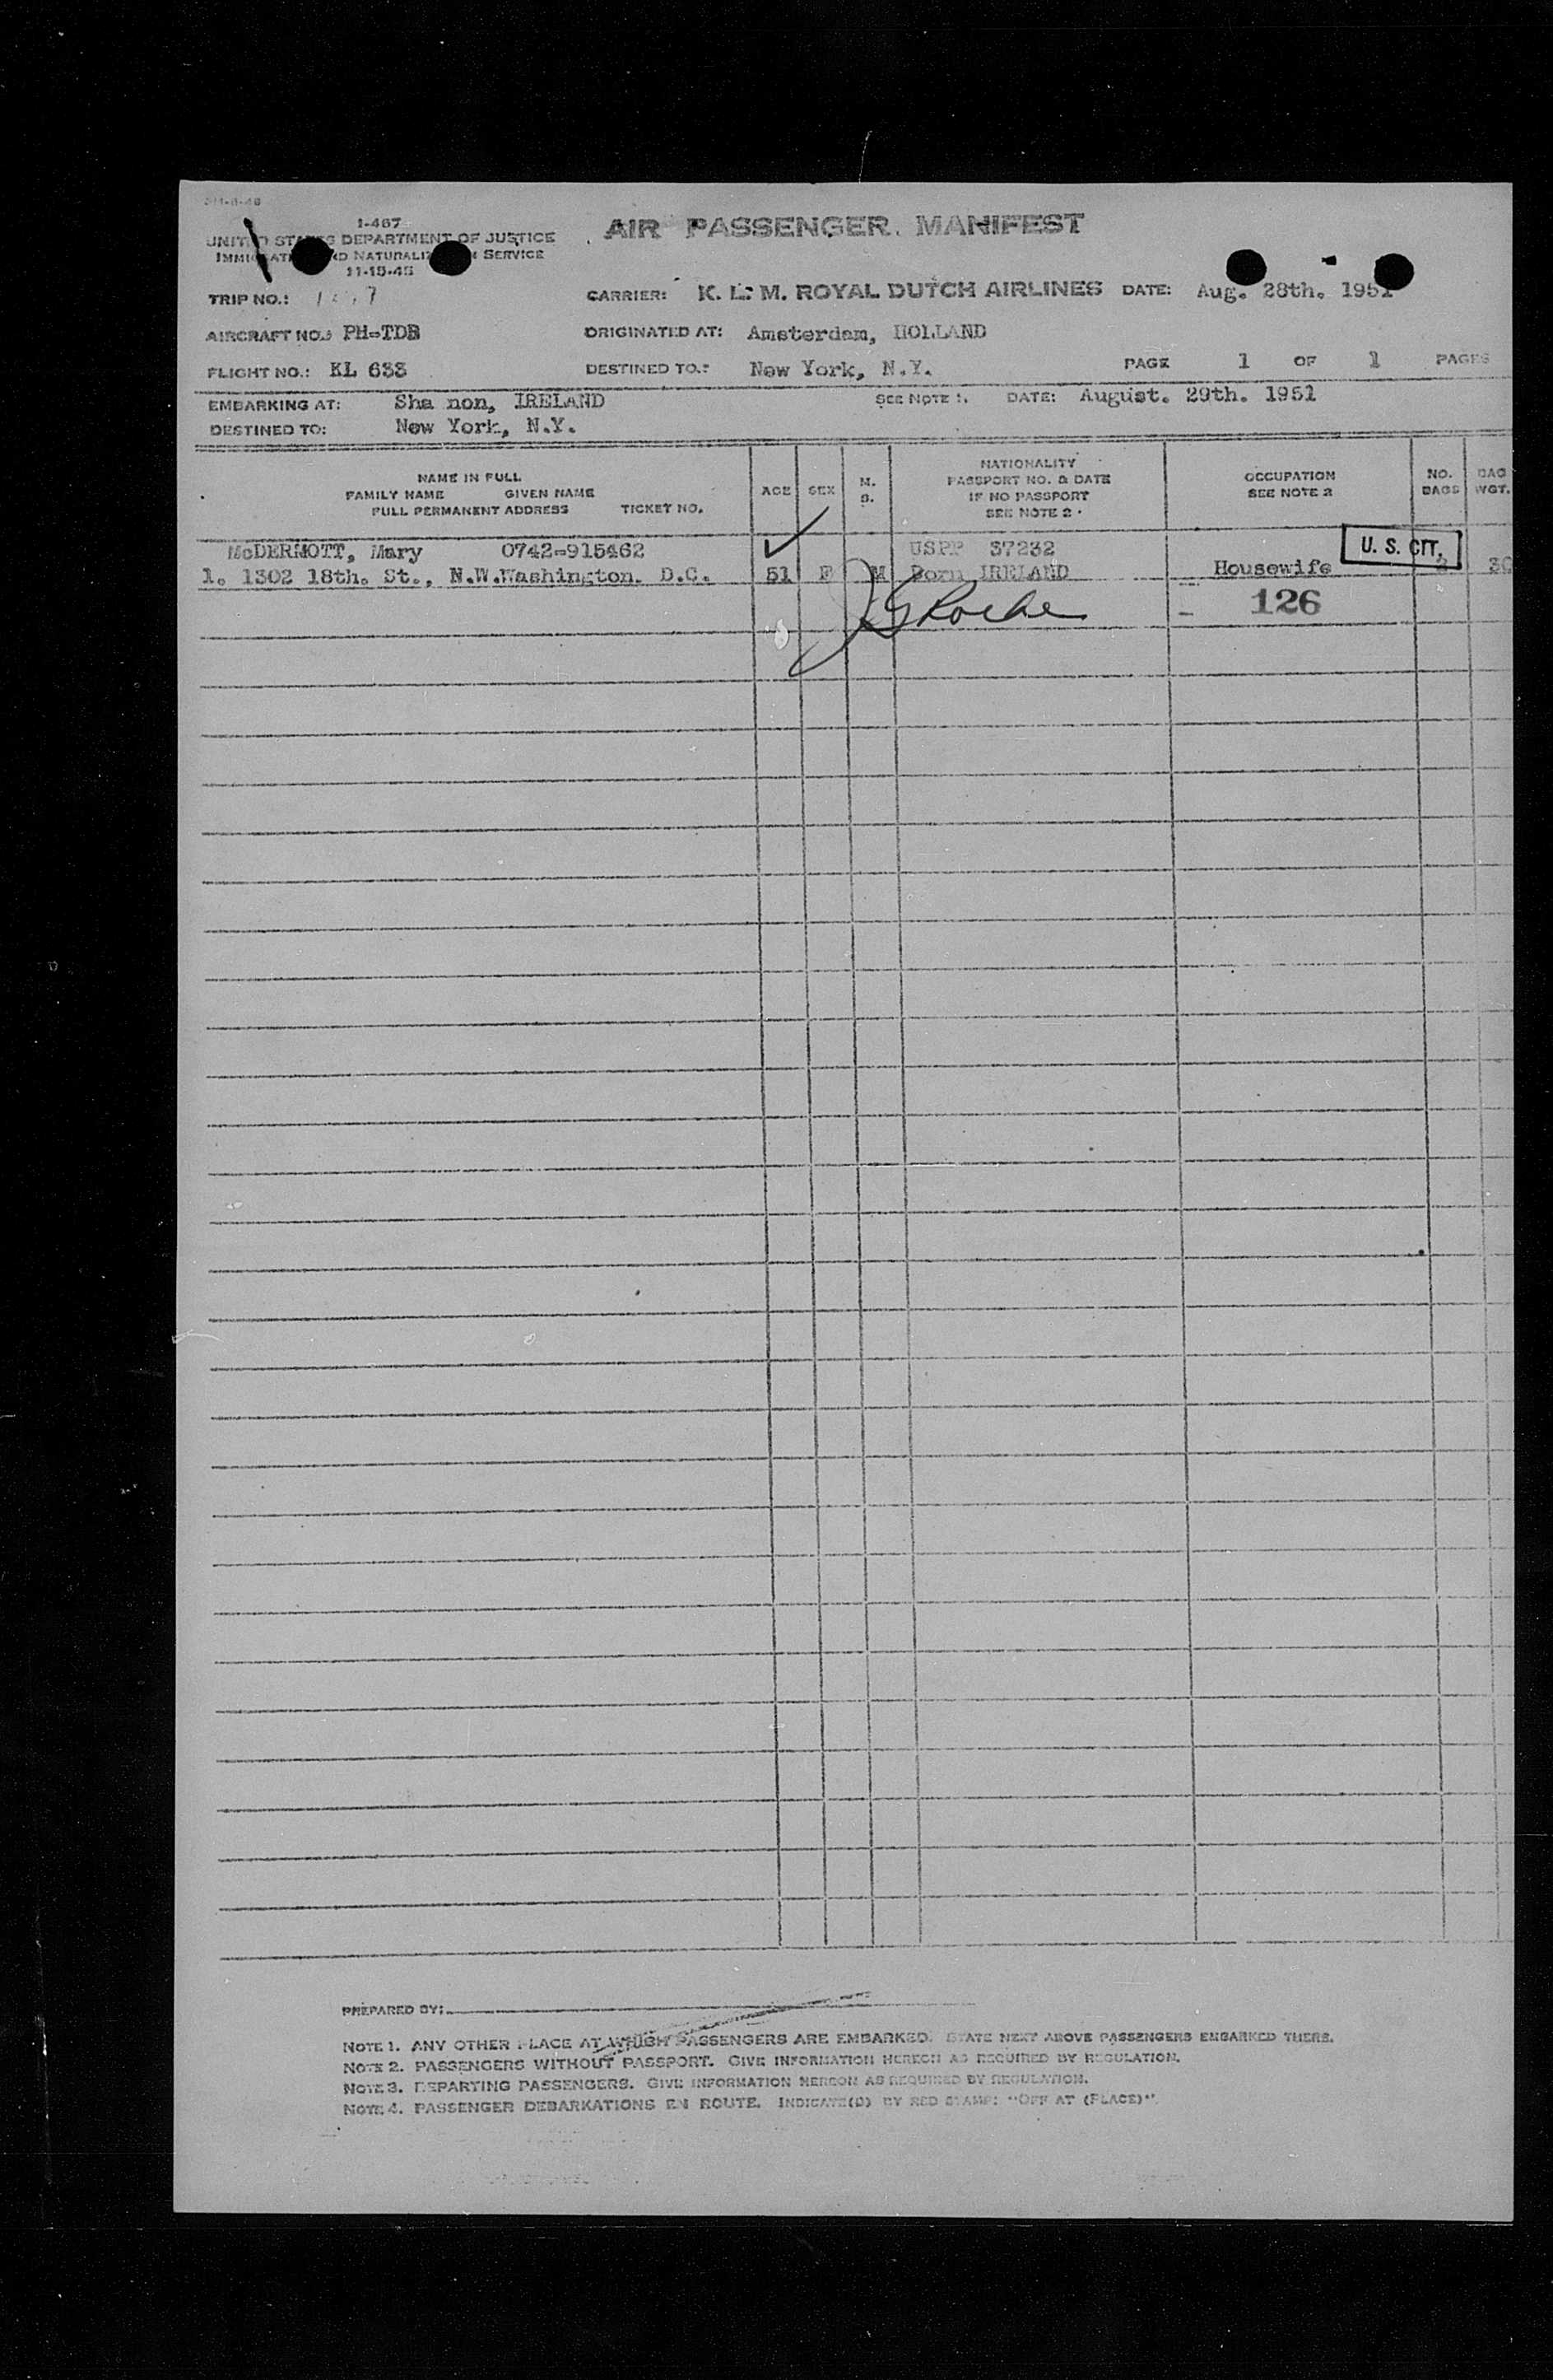 I-467
UNITED STATES DEPARTMENT OF JUSTICE
IMMIGRATION AND NATURALIZATION SERVICE
11-15-45
AIR PASSENGER MANIFEST
TRIP NO.:
CARRIER: K. L. M. ROYAL DUTCH AIRLINES DATE: Aug. 28th. 1951
AIRCRAFT NO.: PH-TDB ORIGINATED AT: Amsterdam, HOLLAND
FLIGHT NO.: KL 633 DESTINED TO.: New York, N.Y. PAGE 1 OF 1 PAGES
EMBARKING AT: Sha non, IRELAND SEE NOTE 1. DATE: August. 29th. 1951
DESTINED TO: New York, N.Y.
NAME IN FULL
FAMILY NAME GIVEN NAME
FULL PERMANENT ADDRESS TICKET NO.
AGE
SEX
M.
S.
NATIONALITY
PASSPORT NO. & DATE
IF NO PASSPORT
SEE NOTE 2
OCCUPATION
SEE NOTE 2
NO.
BAGS
BAG
WGT.
McDERMOTT, Mary 0742-915462 USPP 37232 U. S. CIT.
1. 1302 18th. St., N.W.Washington. D.C. 51 F M Born IRELAND Housewife 30
JG Roche
126
PREPARED BY:
NOTE 1. ANY OTHER PLACE AT WHICH PASSENGERS ARE EMBARKED. STATE NEXT ABOVE PASSENGERS EMBARKED THERE.
NOTE 2. PASSENGERS WITHOUT PASSPORT. GIVE INFORMATION HEREON AS REQUIRED BY REGULATION.
NOTE 3. DEPARTING PASSENGERS. GIVE INFORMATION HEREON AS REQUIRED BY REGULATION.
NOTE 4. PASSENGER DEBARKATIONS EN ROUTE. INDICATE(D) BY RED STAMP: "OFF AT (PLACE)".